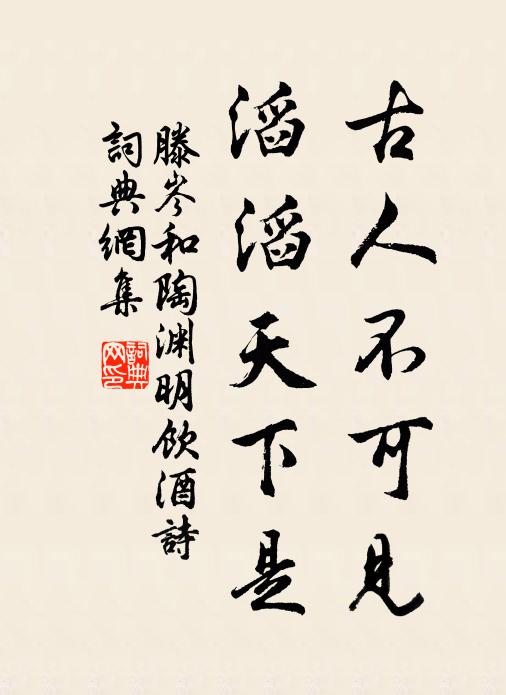 古人不可見
滔滔天下是
滕岑和陶渊明飲酒詩
詞典網集
詞典网印